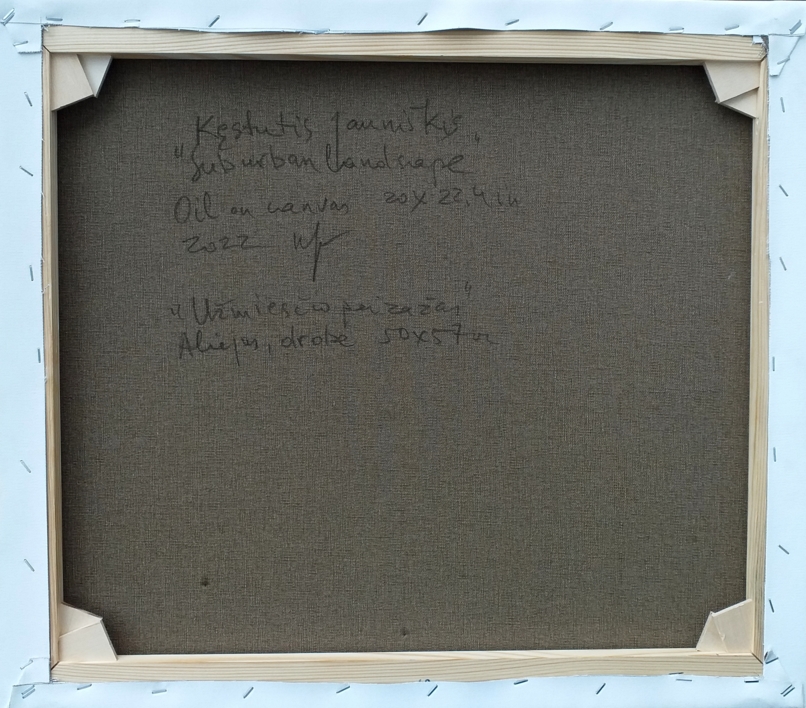 Kęstutis Jauniškis
"Suburban Landscape"
Oil on canvas 20x22,4 in
2022
"Užmiesčio peizažas"
Aliejus, drobė 50x57